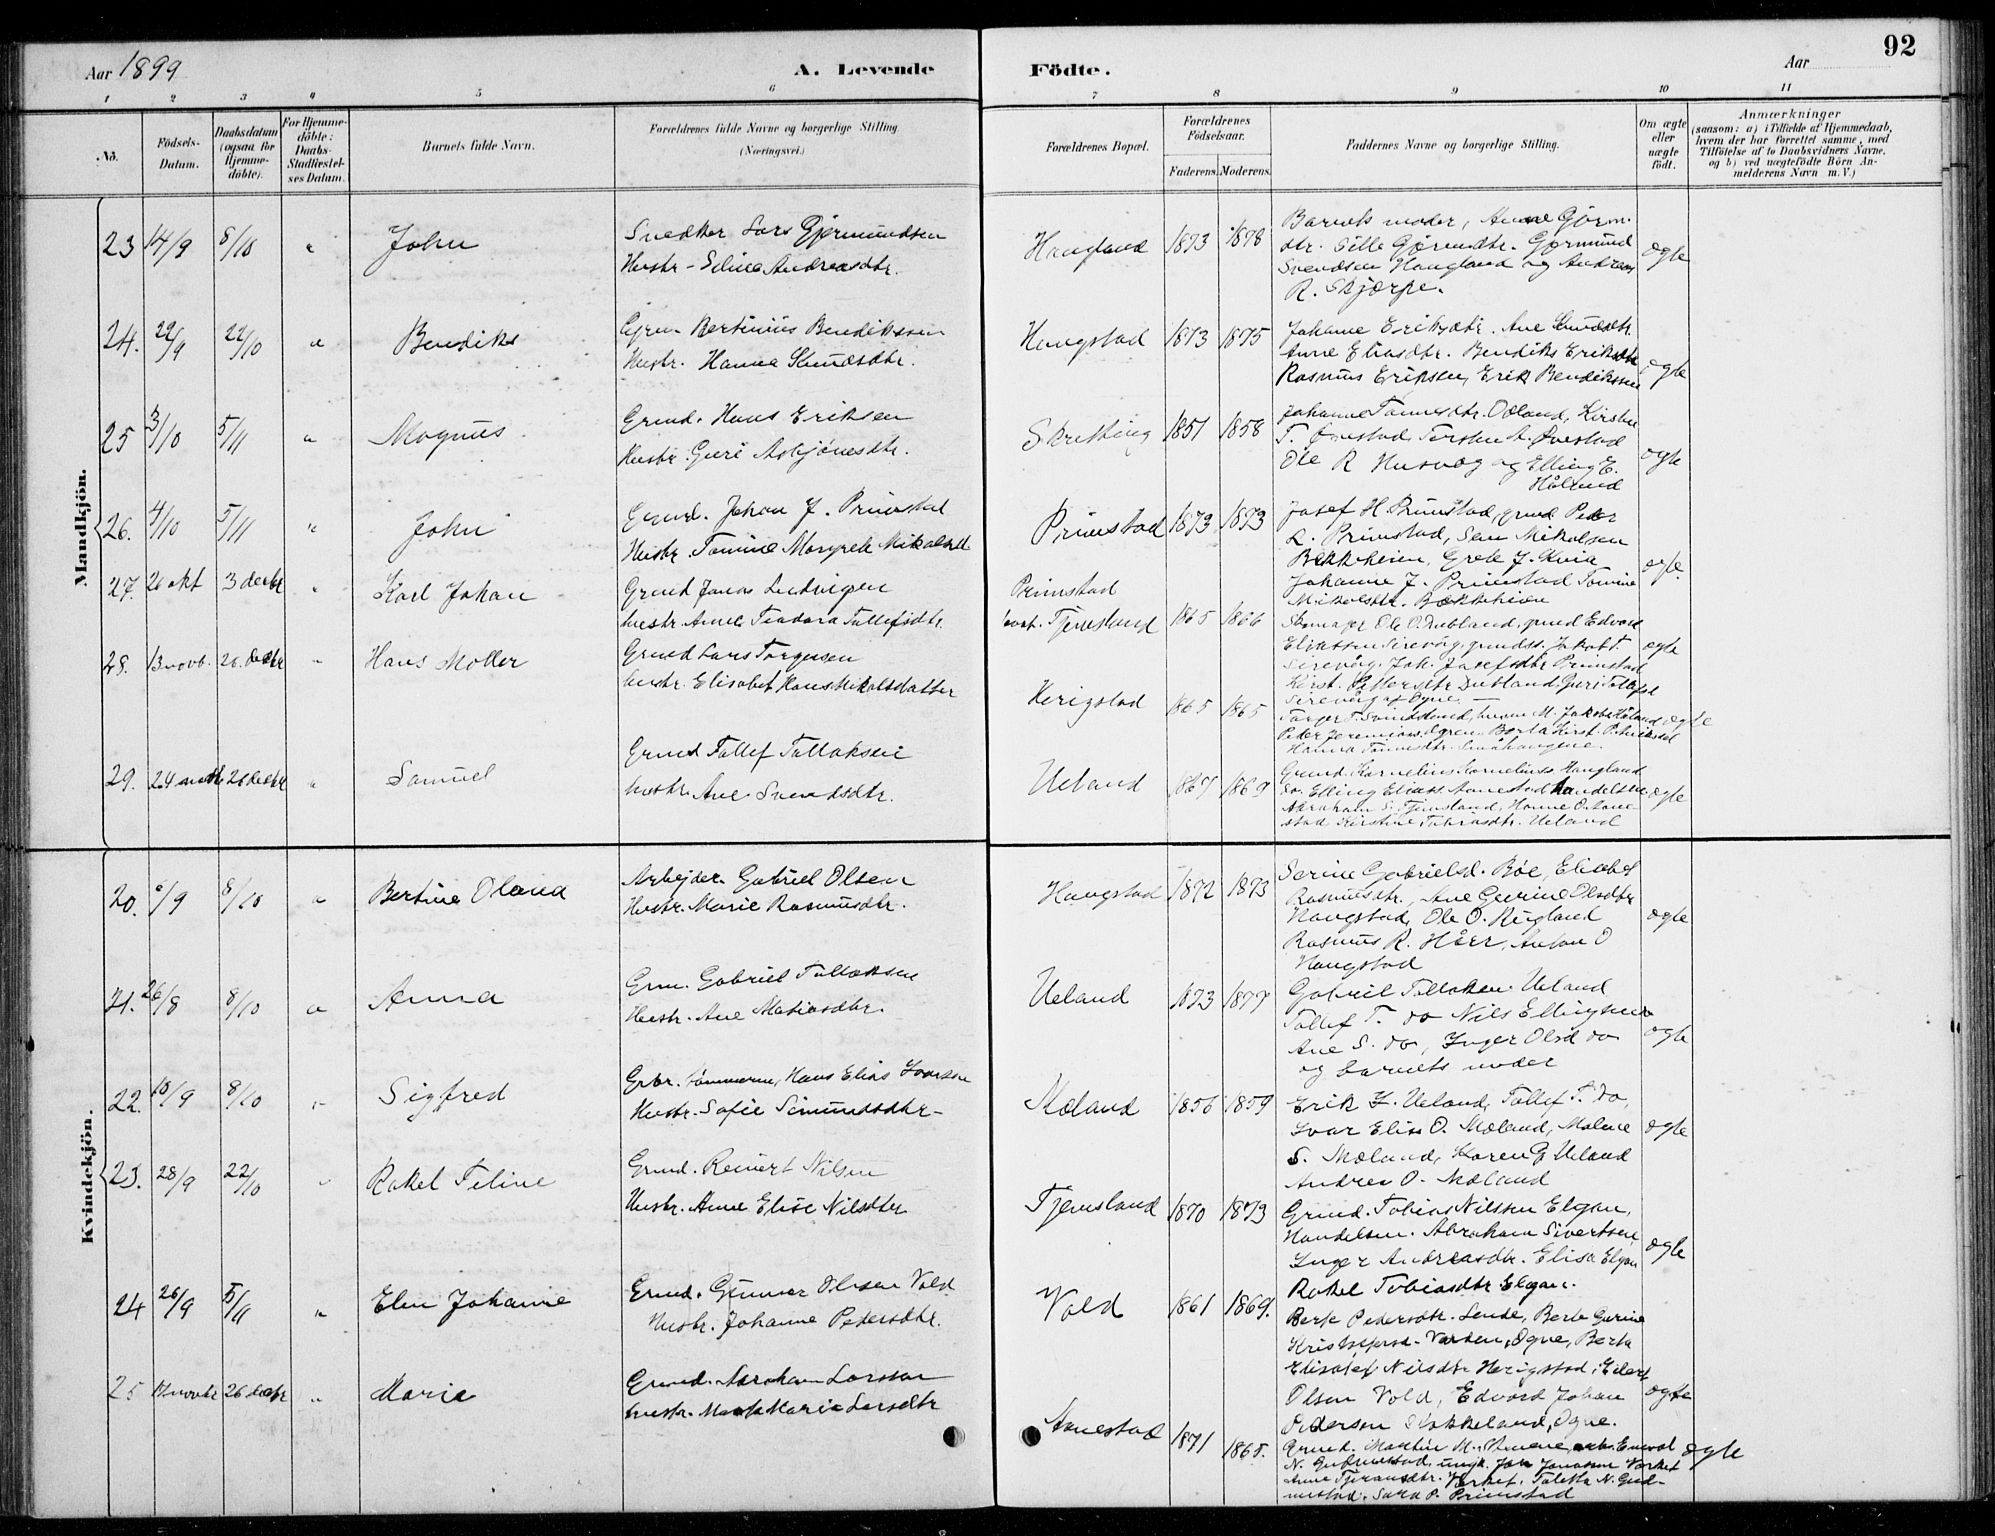 Aar 1899
A. Levende Födte.
Aar
92
1 2 3 4 5 6 7 8 9 10 11
No.
Födsels-Datum.
Daabsdatum (ogsaa for Hjemmedöbte).
For Hjemmedöbte: Daabs-Stadfæstelses Datum.
Barnets fulde Navn.
Forældrenes fulde Navne og borgerlige Stilling (Næringsvei.)
Forældrenes Bopæl.
Forældrenes Födselsaar.
Faderens. Moderens.
Faddernes Navne og borgerlige Stilling.
Om ægte eller uægte födt.
Anmærkninger
(saasom: a) i Tilfælde af Hjemmedaab, hvem der har forrettet samme, med Tilföielse af to Daabsvidners Navne, og b) ved uægtefödte Börn Anmelderens Navn m. V.)
Mandkjön.
23 14/9 8/10 " John
Snedker Lars Gjermundsen
Hustr - Seline Andreasdtr.
Haugland 1873 1878
Barnets moder, Anne Gjörm.
dtr.
Svendsen Haugland og Andreas
R. Skjærpe.
ægte
24. 29/9 22/10 " Bendiks
Grm. Bertinius Bendikssen
Hustr. Hanna Knudsdtr.
Haugstad 1873 1875
Johanne Eriksdtr. Ane Knudsdtr.
Anne Eliasdtr. Bendiks
Rasmus Eriksen, Erik Bendikssen
ægte
25 3/10 5/11 " Magnus
Grmd. Hans Eriksen
Hustr. Guri Asbjönsdtr.
Skretting 1851 1858
Johanne Tönnesdtr. Odland, Kirstine
T. Torsten A.
Ole R Husvæg og Elling E.
Håland
ægte
26. 4/10 5/11 " John
Grmd. Johan J. Prinstad
Hustr. Tomine Margrete
Prinstad 1873 1873
Josef H Prinstad, grmd Peder
L. Prinstad, Mikalsen
Bekkheien, Grete J. Kvia
Johanne J. Prinstad Tomine
Mikalsdtr. Bækkheien
ægte
27. 26 okt 3 decbr " Karl Johan
Grmd Jonas Ludvigsen
hustr. Anne Teodora Tollefsdtr.
Prinstad
Tjemsland 1865 1866
Skomager Ole O. Dubland, grmd Edvard
Eliassen Sirevåg, grmds. Jakob T.
Sirevåg, Joh. Josefsdtr Prinstad
Kirst. Pettersdtr Dubland,
Sirevåg af Ogne
ægte
28. 13 novb. 26 decbr " Hans Møller
Grmd Lars Torgersen
hustr. Elisabet Hansmikalsdatter
Herigstad 1865 1865
Torger T.
Peder Jeremiass. Ogren. Berta Kirst.
Hanna Tönnesdtr.
ægte
29. 24 26 decbr " Samuel
Grmd Tollef Tollaksen
hustr. Ane Svendsdtr.
Ueland 1867 1869
Grmd. Kornelius Korneliuss Haugland
do. Elling Eliass Aanestad
Abraham S. Tjemsland, Hanne O. Aane
stad Kirstine Tobiasdtr. Ueland
ægte
Kvindekjön.
20. 6/9 8/10 " Bertine Olava
Arbejder. Gabriel Olsen
Hustr. Marie Rasmusdtr.
Haugstad 1872 1873
Serine Gabrielsd. Bøe, Elisabet
Rasmusdtr., Ane Gurine Olsdtr
Haugstad, Ole O.
Rasmus R. Hårr, Anton O
Haugstad
ægte
21. 26/8 8/10 " Anna
Grm. Gabriel Tollaksen
Hustr. Ane Matiasdtr.
Ueland 1873 1877
Gabriel Tollaksen Ueland
Tollef T. do Nils Ellingsen
Ane S. do, Inger Olsd do
og barnets moder
ægte
22. 10/9 8/10 " Sigfred
Hans Elias Ivarsen
Hustr. Sofie Simunsdtr-
Mæland 1856 1859
Erik I. Ueland, Tollef T. do,
Ivar Elias O. Mæland, Malene
S. Mæland, Karen G Ueland
Andrea O. Mæland
ægte
23. 28/9 22/10 " Rakel Teline
Grmd. Reinert Nilsen
Hustr. Anne Elise Nilsdtr
Tjemsland 1870 1873
Grmd. Tobias Nilssen Elgan,
Handelsm. Abraham Sivertsen
Inger Andreasdtr. Elisa Elgan
Rakel Tobiasdtr Elgan.
ægte
24 26/9 5/11 " Elen Johanne
Grmd. Gunner Olsen Vold
Hustr. Johanne Petersdtr.
Vold 1861 1869.
Berte Pedersdtr. Lende, Berte Gurine
Ogne, Berta
Elisabet Nilsdtr Herigstad, Eilert
Olsen Vold, Edvart Johan
Pedersen Slokkeland, Ogne.
ægte
25 17 novbr 26 decbr " Marie
Grmd. Abraham Larsson
hustr. Marta Maria Larsdtr
Aanestad 1871 1865.
Grmd. Martin M.
N. ungk. Jon Jonassen Varhet
Anne
Sara P. Prinstad
ægte